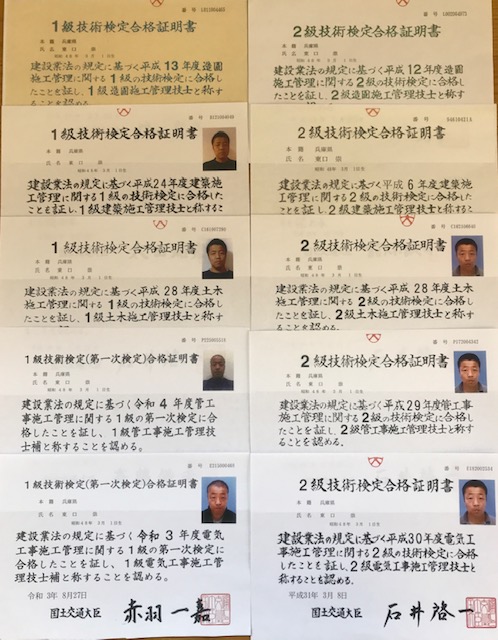 1級技術検定合格証明書
本籍 兵庫県
氏名 東口
建設業法の規定に基づく平成13年度造園
施工管理に関する1級の技術検定に合格し
たことを証し、1級造園施工管理技士と称す
ることを認める
2級技術検定合格証明書
本籍 兵庫県
氏名 東口
建設業法の規定に基づく平成12年度造園
施工管理に関する2級の技術検定に合格し
たことを証し、2級造園施工管理技士と称す
ることを認める
1級技術検定合格証明書
本籍 兵庫県
氏名 東口
建設業法の規定に基づく平成24年度建築施
工管理に関する1級の技術検定に合格した
ことを証し、1級建築施工管理技士と称する
2級技術検定合格証明書
本籍 兵庫県
氏名 東口
建設業法の規定に基づく平成6年度建築施
工管理に関する2級の技術検定に合格した
ことを証し、2級建築施工管理技士と称する
1級技術検定合格証明書
本籍 兵庫県
氏名 東口
建設業法の規定に基づく平成28年度土木
施工管理に関する1級の技術検定に合格し
たことを証し、1級土木施工管理技士と称す
2級技術検定合格証明書
本籍 兵庫県
氏名 東口
建設業法の規定に基づく平成28年度土木
施工管理に関する2級の技術検定に合格し
たことを証し、2級土木施工管理技士と称す
ることを認める。
1級技術検定(第一次検定)合格証明書
本籍 兵庫県
氏名 東口
建設業法の規定に基づく令和4年度管工
事施工管理に関する1級の第一次検定に合
格したことを証し、1級管工事施工管理技
士補と称することを認める。
2級技術検定合格証明書
本籍 兵庫県
氏名 東口
建設業法の規定に基づく平成29年度管工事
施工管理に関する2級の技術検定に合格し
たことを証し、2級管工事施工管理技士と称
することを認める。
1級技術検定(第一次検定)合格証明書
本籍 兵庫県
氏名 東口
建設業法の規定に基づく令和3年度電気
工事施工管理に関する1級の第一次検定に
合格したことを証し、1級電気工事施工管
理技士補と称することを認める。
令和3年8月27日
国土交通大臣 赤羽一嘉
2級技術検定合格証明書
本籍 兵庫県
氏名 東口
建設業法の規定に基づく平成30年度電気工
事施工管理に関する2級の技術検定に合格
したことを証し、2級電気工事施工管理技士
と称することを認める。
平成31年3月8日
国土交通大臣 石井啓一